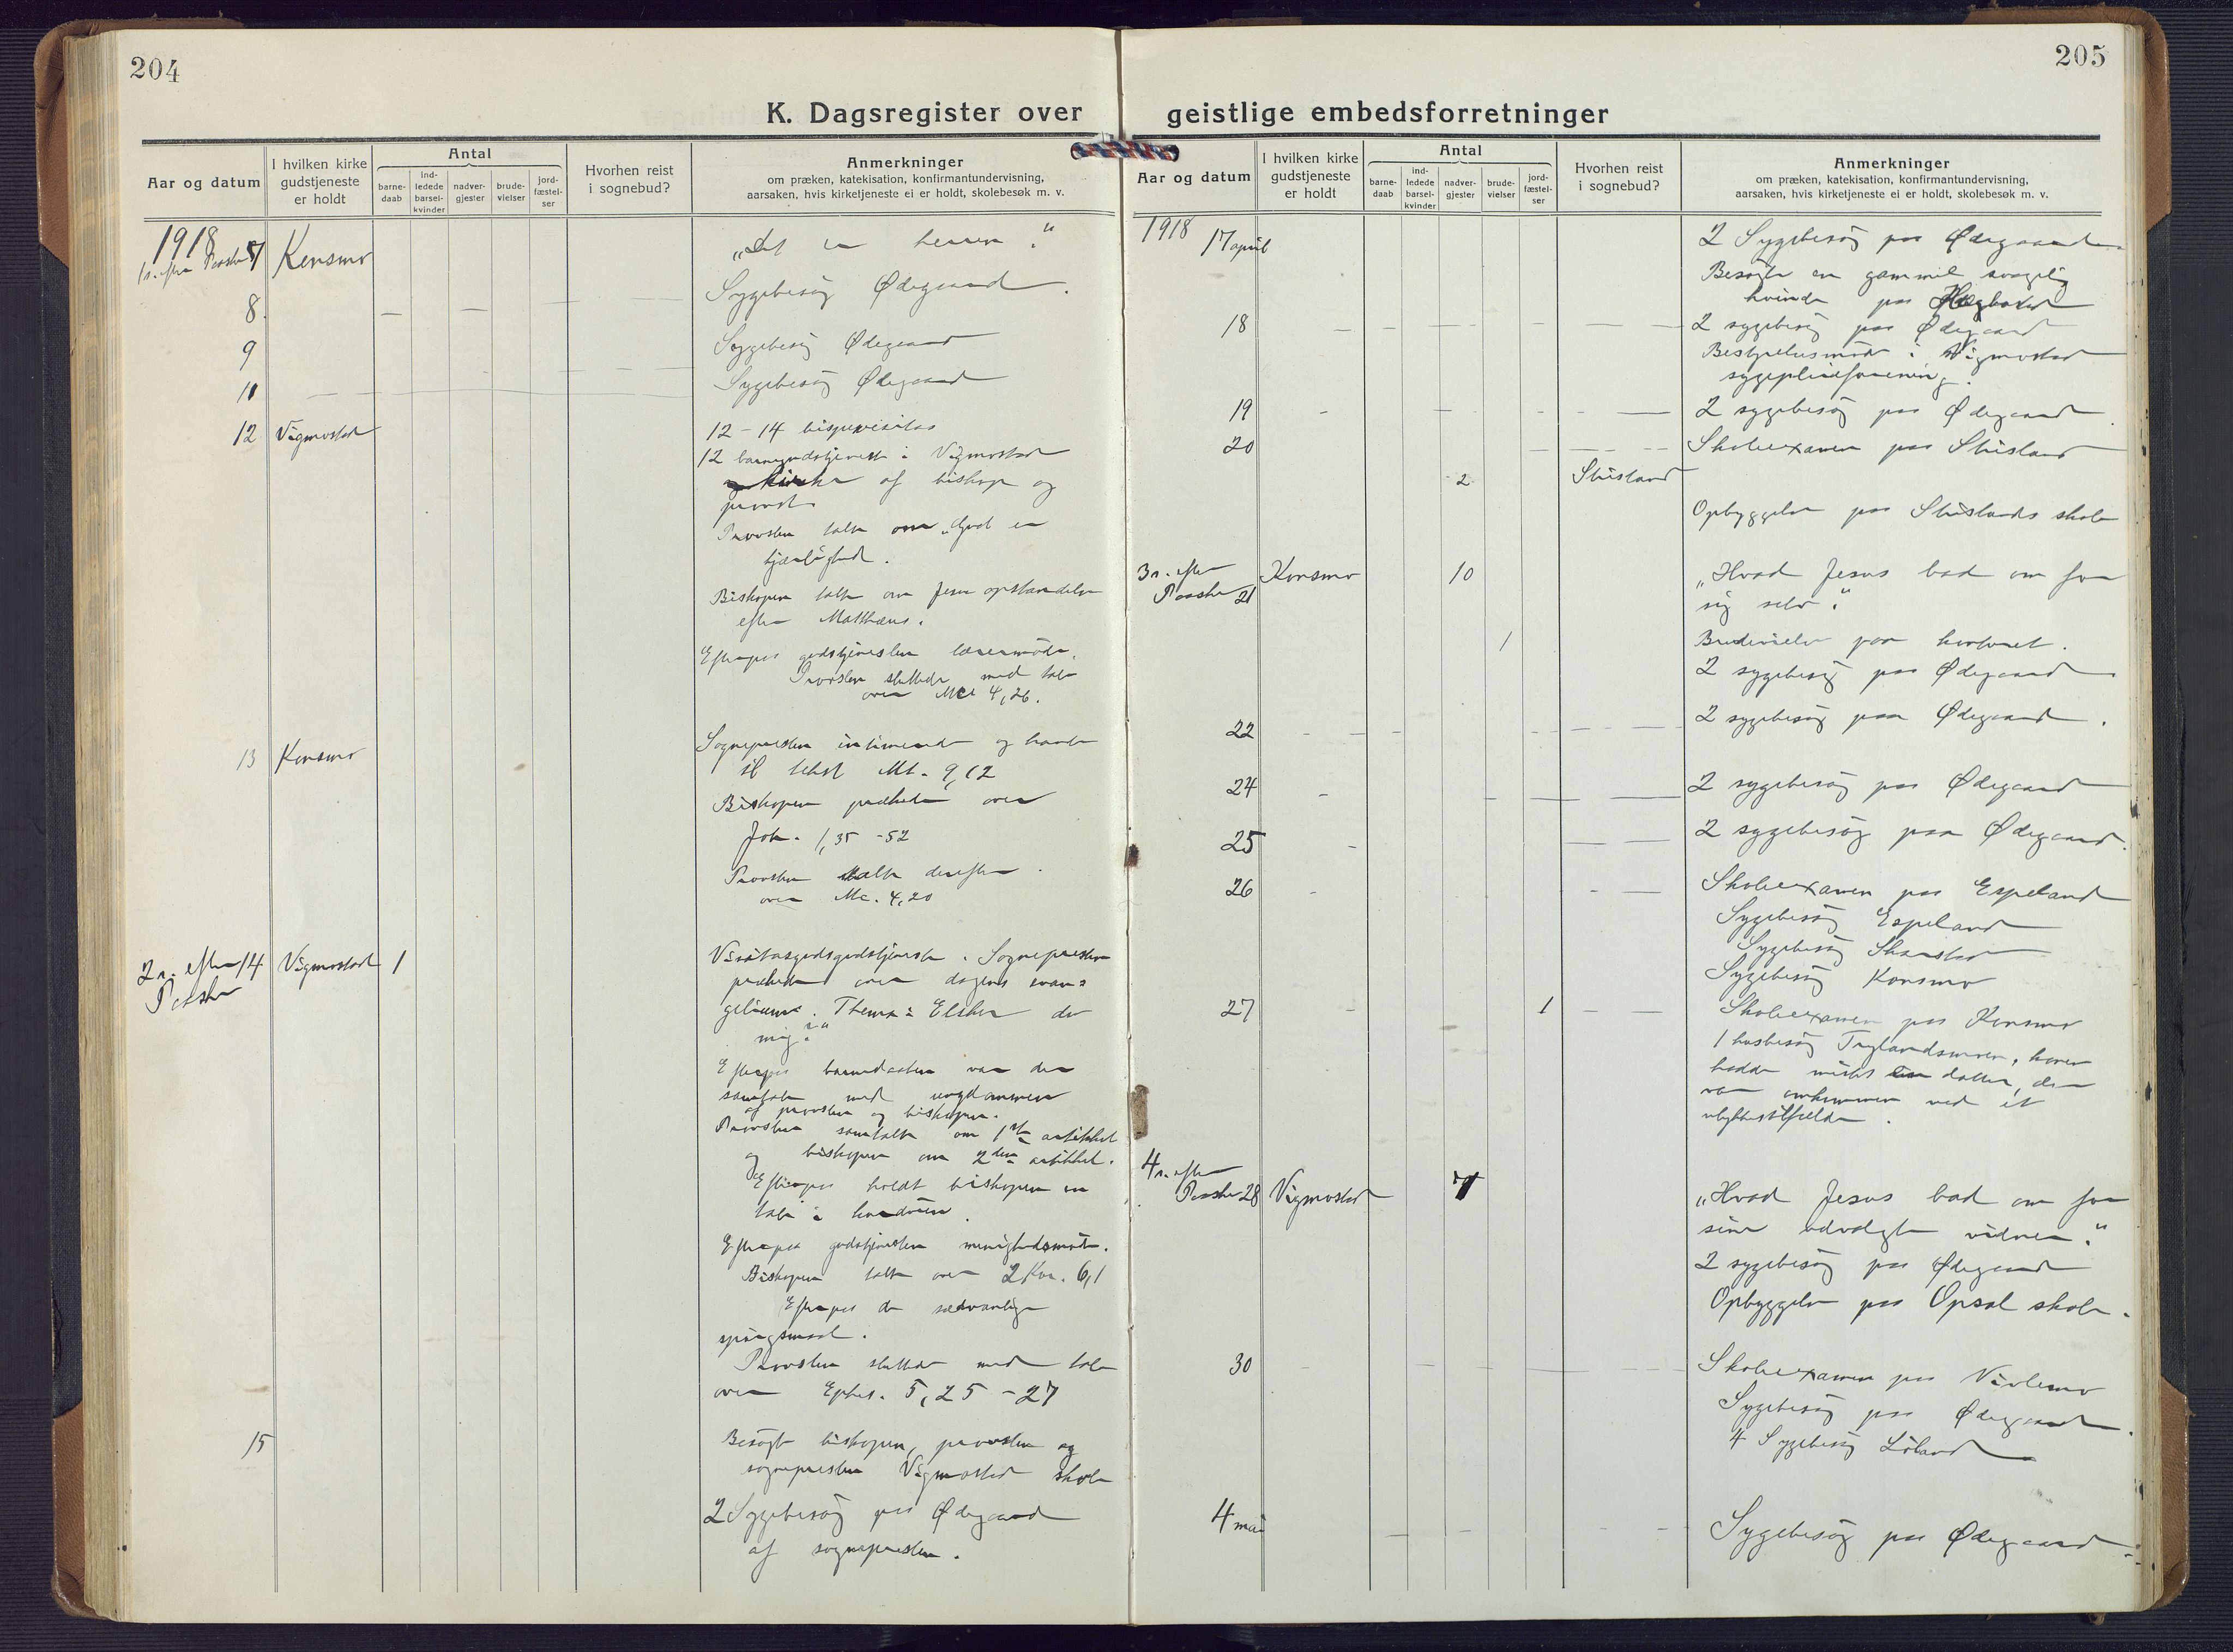 204
K. Dagsregister over
Aar og datum
I hvilken kirke
gudstjeneste
er holdt
Antal
barne-
daab
ind-
ledede
barsel-
kvinder
nadver-
gjester
brude-
vielser
jord-
fæstel-
ser
Hvorhen reist
i sognebud?
Anmerkninger
om præken, katekisation, konfirmantundervisning,
aarsaken, hvis kirketjeneste ei er holdt, skolebesøk m. v.
1918
1 s. efter Paaske 7 Konsmo „Det er herren."
Sygebesøg Ødegaard.
8.
9 Sygebesøg Ødegaard
11 Sygebesøg Ødegaard
12 Vigmostad 12-14 bispevisitas
12 barnegudstjeneste i Vigmostad
kirke af biskop og
provst
Provsten talte om „Gud er
kjærlighed.
Biskopen talte om Jesu opstandelse
efter Matthæus.
Efterpaa gudstjenesten lærermøde.
Provsten sluttede med tale
over Mc 4,26.
13 Konsmo Sognepresten intimerede og havde
til tekst Mt. 9,12
Biskopen prækede over
Joh. 1,35-52
Provsten talte derefter
over Mc. 4,20
2 s. efter 14 Vigmostad 1 Visitasgudsgudstjeneste. Sognepresten
Paaske
prækede over dagens evan=
gelium. Thema: Elsker du
mig?"
Efterpaa barnedaaben var der
samtale med ungdommen
af provsten og biskopen.
Provsten samtalte om 1ste artikkel
og biskopen om 2den artikkel.
Efterpaa holdt biskopen en
tale i kordøren.
Efterpaa gudstjenesten menighedsmøte.
Biskopen talte over 2 Kor. 6,1
Efterpaa de sædvanlige
spørgsmaal.
Provsten sluttede med tale
over Ephes. 5,25-27
15 Besøgte biskopen, provsten og
sognepresten Vigmostad skole
2 Sygebesøg paa Ødegaard
af sognepresten.
205
geistlige embedsforretninger
Aar og datum
I hvilken kirke
gudstjeneste
er holdt
Antal
barne-
daab
ind-
ledede
barsel-
kvinder
nadver-
gjester
brude-
vielser
jord-
fæstel-
ser
Hvorhen reist
i sognebud?
Anmerkninger
om præken, katekisation, konfirmantundervisning,
aarsaken, hvis kirketjeneste ei er holdt, skolebesøk m. v.
1918 17 april 2 Sygebesøg paa Ødegaard.
Besøgte en gammel svagelig
kvinde paa
18 2 sygebesøg paa Ødegaard
Bestyrelsesmøde i Vigmostad
sygepleieforening.
19 2 sygebesøg paa Ødegaard
20 Skoleexamen paa Stusland
2 Stusland
Opbyggelse paa Stuslands skole
3 s. efter Konsmo 10 „Hvad Jesus bad om for
Paaske 21 sig selv."
1 Brudevielse paa kontoret.
2 sygebesøg paa Ødegaard
22 2 sygebesøg paa Ødegaard.
24 2 sygebesøg paa Ødegaard
25 2 sygebesøg paa Ødegaard.
26 Skoleexamen paa Espeland
Sygebesøg Espeland
Sygebesøg
Sygebesøg Konsmo
27 1 Skoleexamen paa Konsmo
1 husbesøg
hadde mistet en datter, der
var omkommen ved et
ulykkestilfælde.
4 s. efter
Paaske 28 Vigmostad 7 „Hvad Jesus bad om for
sine udvalgte vidner."
2 sygebesøg paa Ødegaard
Opbyggelse paa Opsal skole.
30 Skoleexamen paa Vivlemo
Sygebesøg paa Ødegaard.
4 Sygebesøg Liland
4 mai Sygebesøg paa Ødegaard